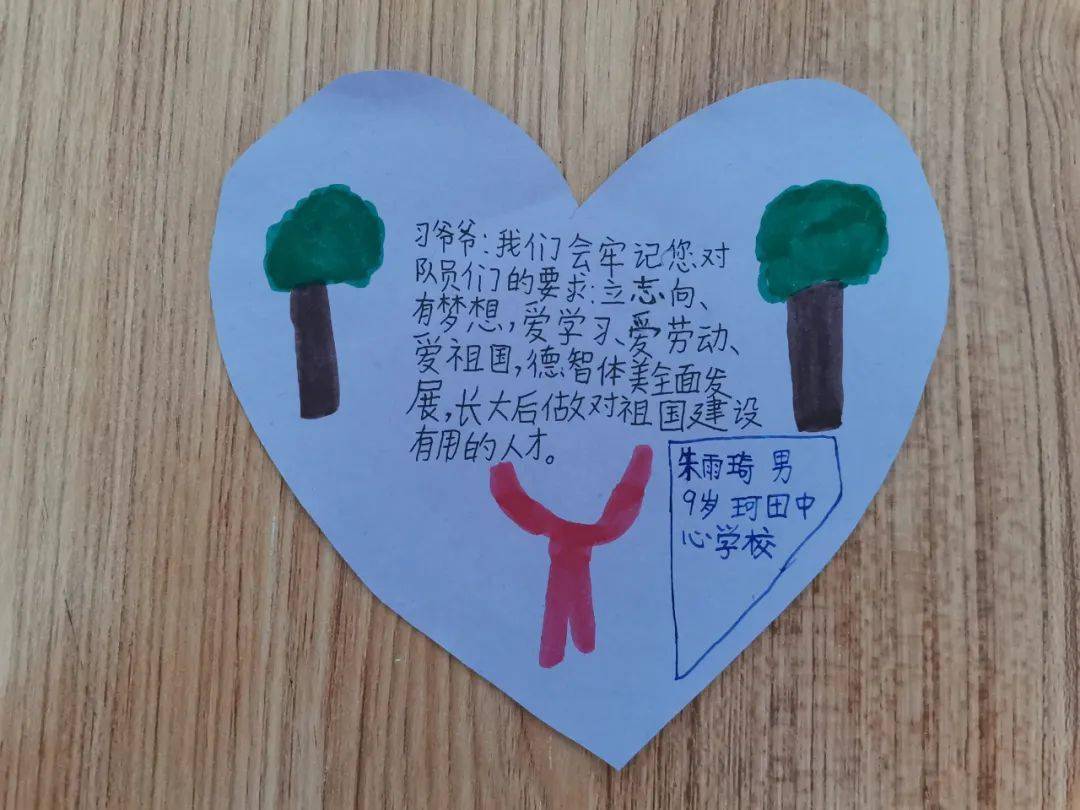 习爷爷:我们会牢记您对
队员们的要求:立志向、
有梦想,爱学习、爱劳动、
爱祖国,德智体美全面发
展,长大后做对祖国建设
有用的人才。
朱雨琦 男
9岁 珂田中
心学校